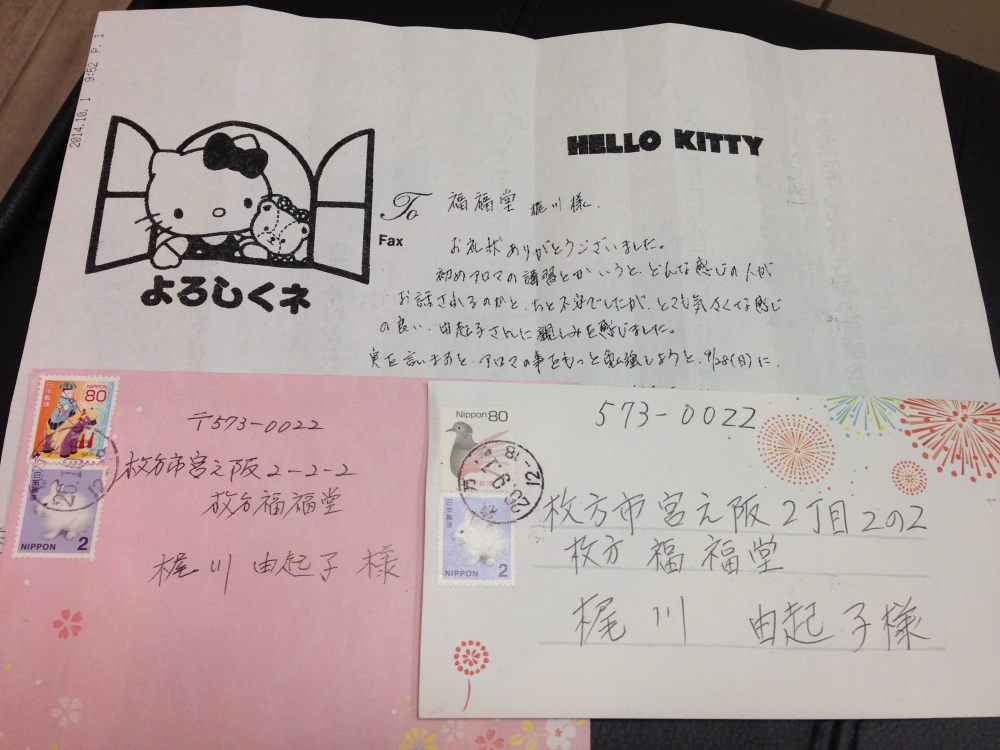 2014.10. 1 9:52 P. 1
HELLO KITTY
よろしくネ
To 福福堂 梶川様.
Fax
お礼状ありがとうございました。
初めアロマの講習とかいうと、どんな感じの人が
お話されるのかと、ちと不安でしたが、とても気さくな感じ
の良い、由起子さんに親しみを感じました。
実を言いますと、アロマの事をもっと勉強しようと、9/28(日)に、
日本郵便 NIPPON 80
日本郵便
NIPPON 2
〒573-0022
枚方市宮之阪2-2-2
枚方福福堂
梶川 由起子 様
Nippon 80
日本郵便
NIPPON 2
12-18
573-0022
枚方市宮之阪2丁目2の2
枚方 福福堂
梶川 由起子様